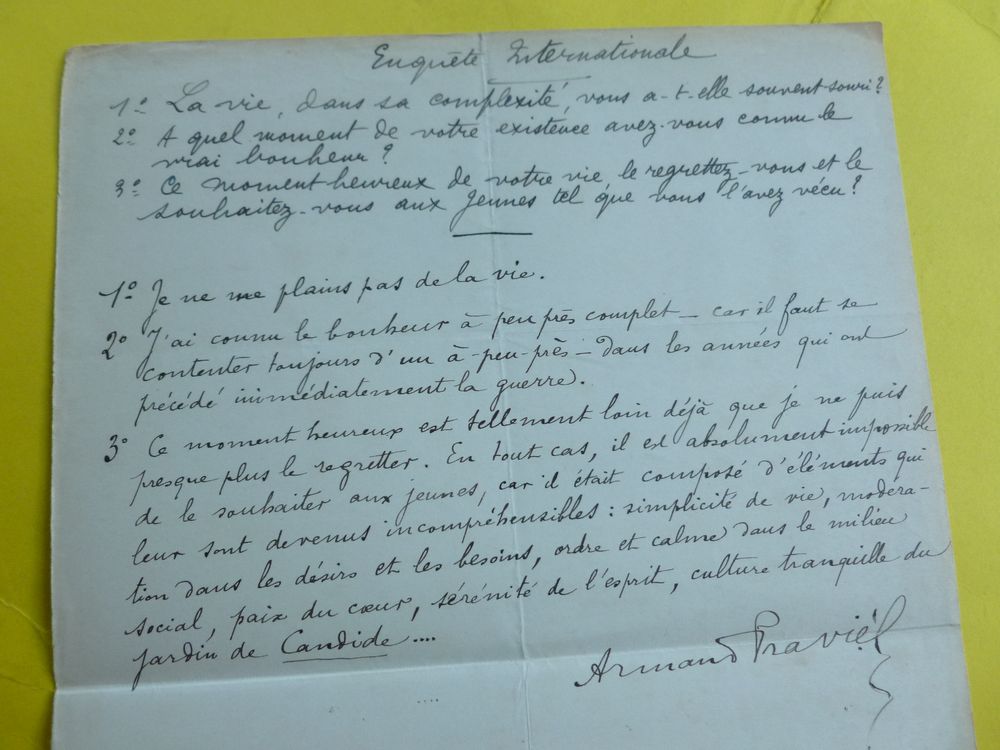 Enquête Internationale
1º La vie, dans sa complexité, vous a-t-elle souvent souri?
2º A quel moment de votre existence avez-vous connu le
vrai bonheur?
3º Ce moment heureux de votre vie le regrettez-vous et le
souhaitez-vous aux jeunes tel que vous l'avez vécu?
1º Je ne me plains pas de la vie.
2º J'ai connu le bonheur à peu près complet – car il faut se
contenter toujours d'un à-peu-près – dans les années qui ont
précédé immédiatement la guerre.
3º Ce moment heureux est tellement loin déjà que je ne puis
presque plus le regretter. En tout cas, il est absolument impossible
de le souhaiter aux jeunes, car il était composé d'éléments qui
leur sont devenus incompréhensibles : simplicité de vie, modéra-
tion dans les désirs et les besoins, ordre et calme dans le milieu
social, paix du cœur, sérénité de l'esprit, culture tranquille du
jardin de Candide....
Armand Praviel